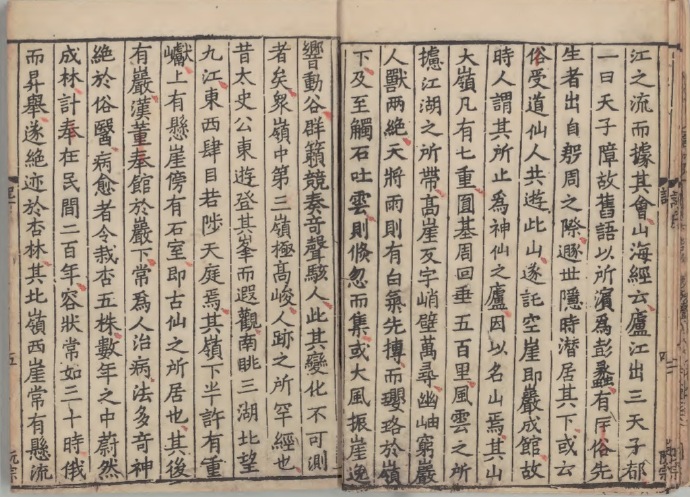 江之流而據其會山海經云廬江出三天子都
一曰天子障故舊語以所濱為彭蠡有匡俗先
生者出自殷周之際遯世隱時潜居其下或云
俗受道仙人共遊此山遂託空崖即巖成館故
時人謂其所止為神仙之廬因以名山焉其山
大嶺凡有七重圓基周回垂五百里風雲之所
攄江湖之所帶高崖反宇峭壁萬尋幽岫窮巖
人獸兩絶天將雨則有白氣先摶而瓔珞於嶺
下及至觸石吐雲則倏忽而集或大風振崖逸
響動谷群籟競奏奇聲駭人此其變化不可測
者矣衆嶺中第三嶺極高峻人跡之所罕經也
昔太史公東遊登其峯而遐觀南眺三湖北望
九江東西肆目若陟天庭焉其嶺下半許有重
巘上有懸崖傍有石室即古仙之所居也其後
有巖漢董奉館於巖下常為人治病法多奇神
絶於俗醫病愈者令栽杏五株數年之中蔚然
成林計奉在民間二百年容狀常如三十時俄
而昇舉遂絶迹於杏林其北嶺西崖常有懸流
五